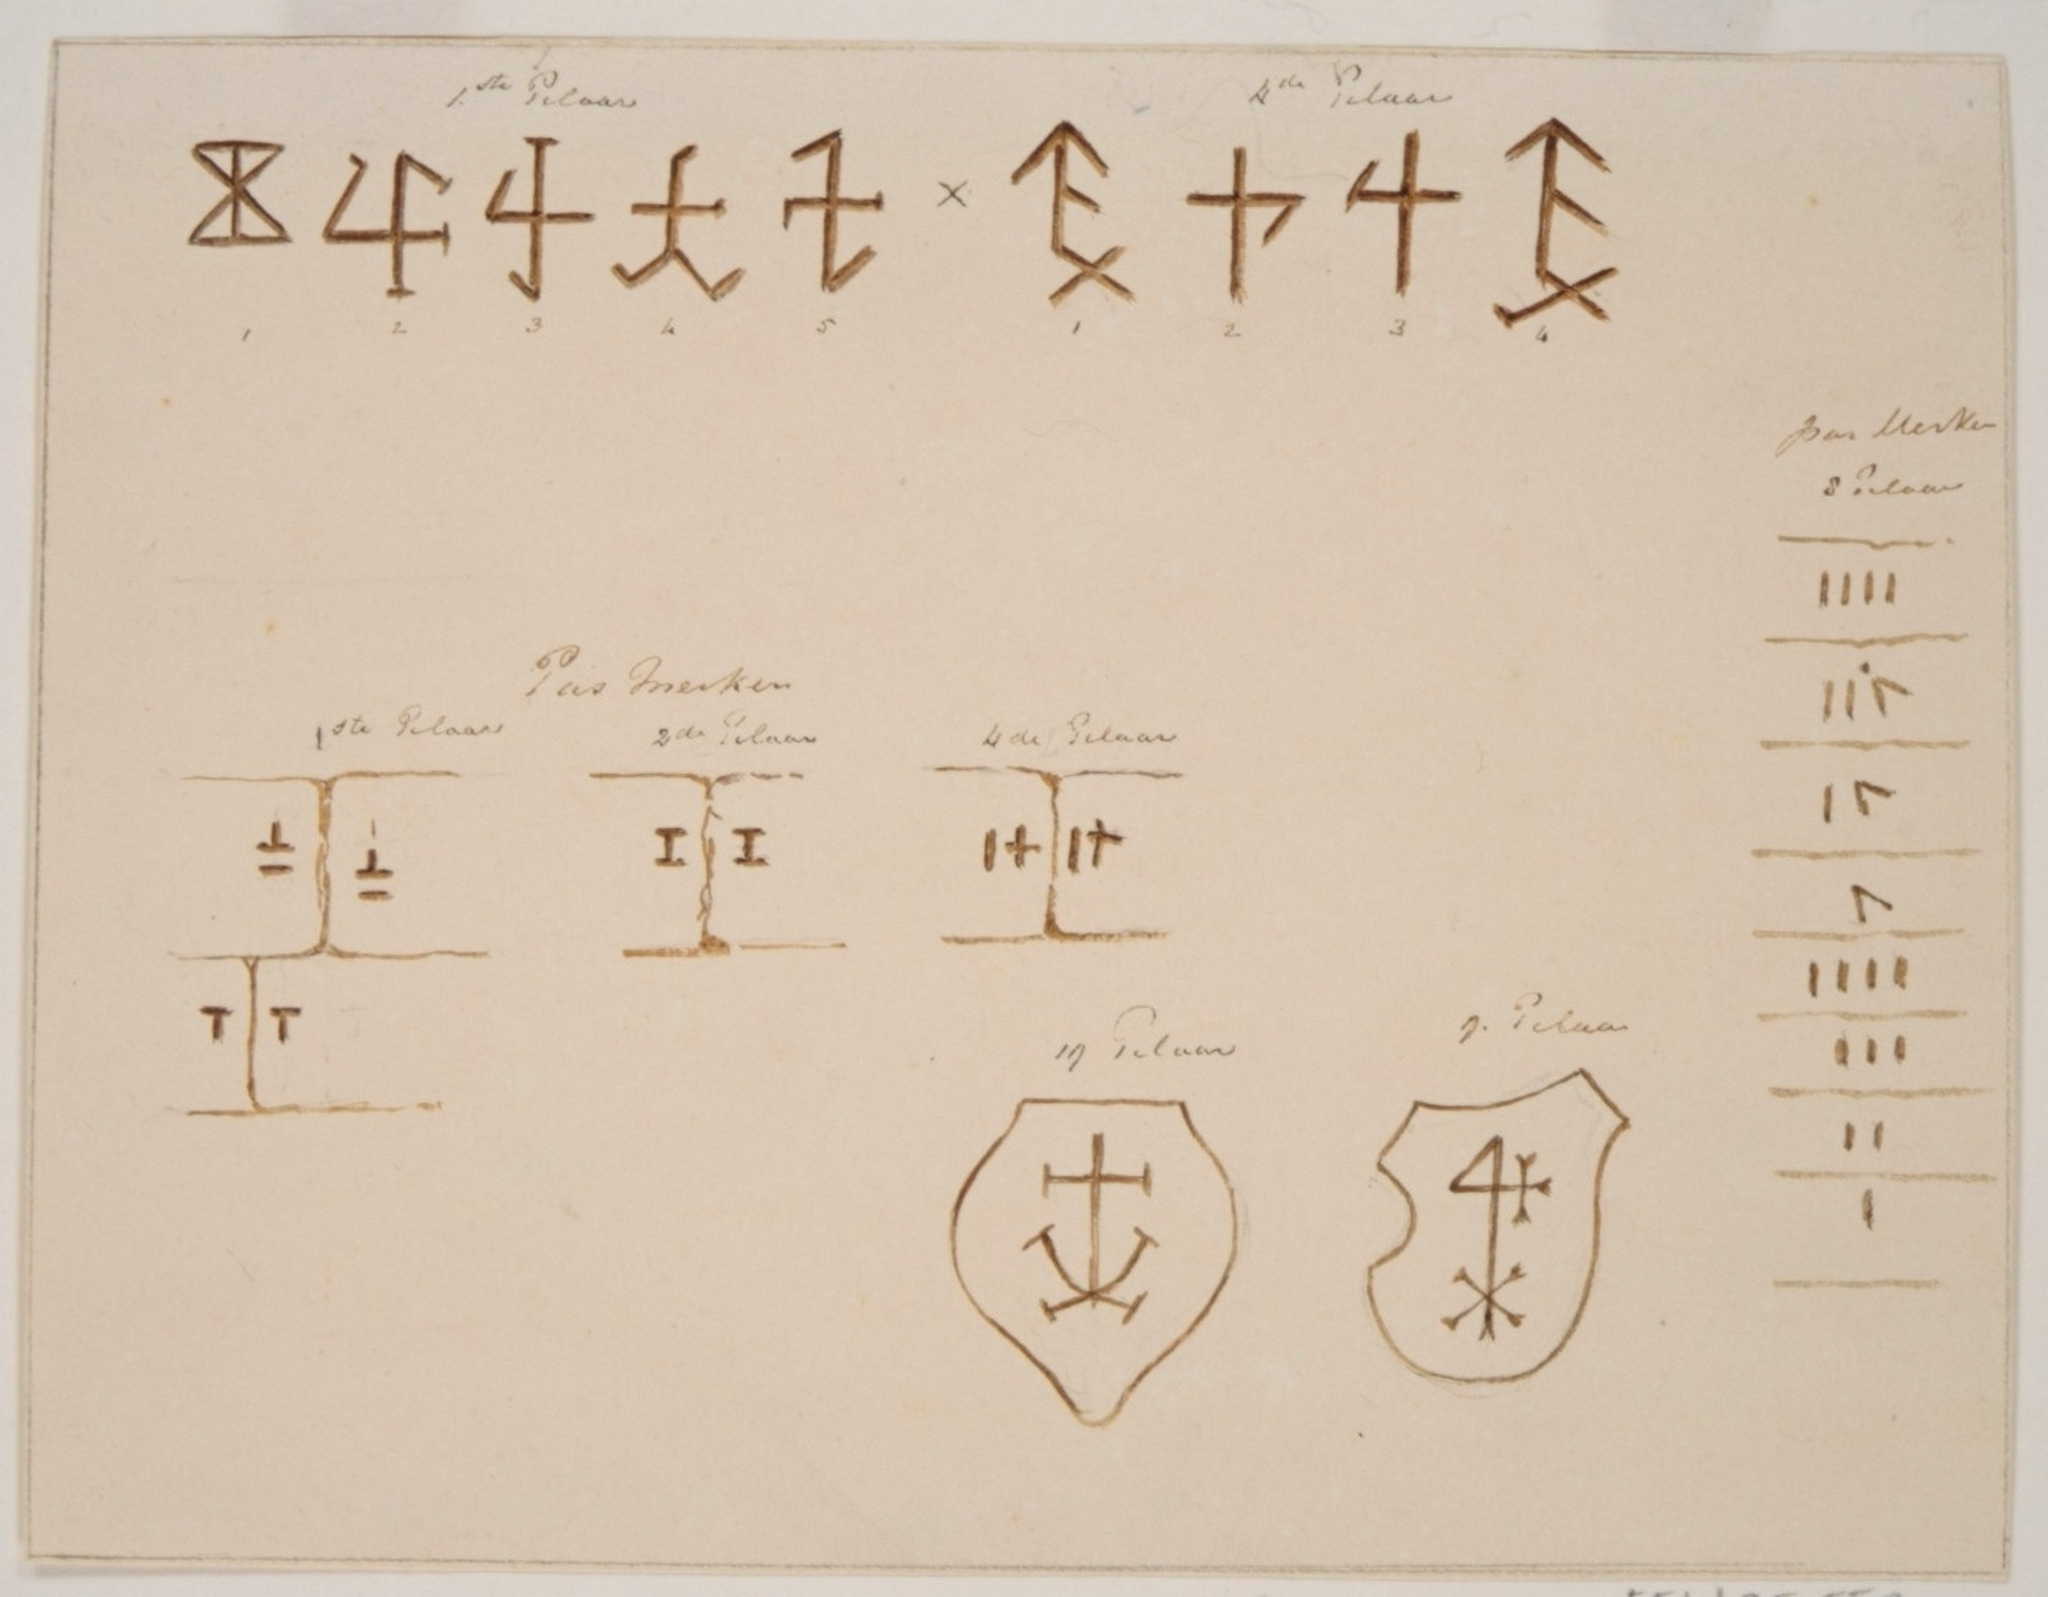 1.ste Pilaar
4de Pilaar
×
1 2 3 4 5
1 2 3 4
pas Merken
8 Pilaar
Pas Merken
1ste Pilaar
2de Pilaar
4de Pilaar
Pilaar
Pilaar